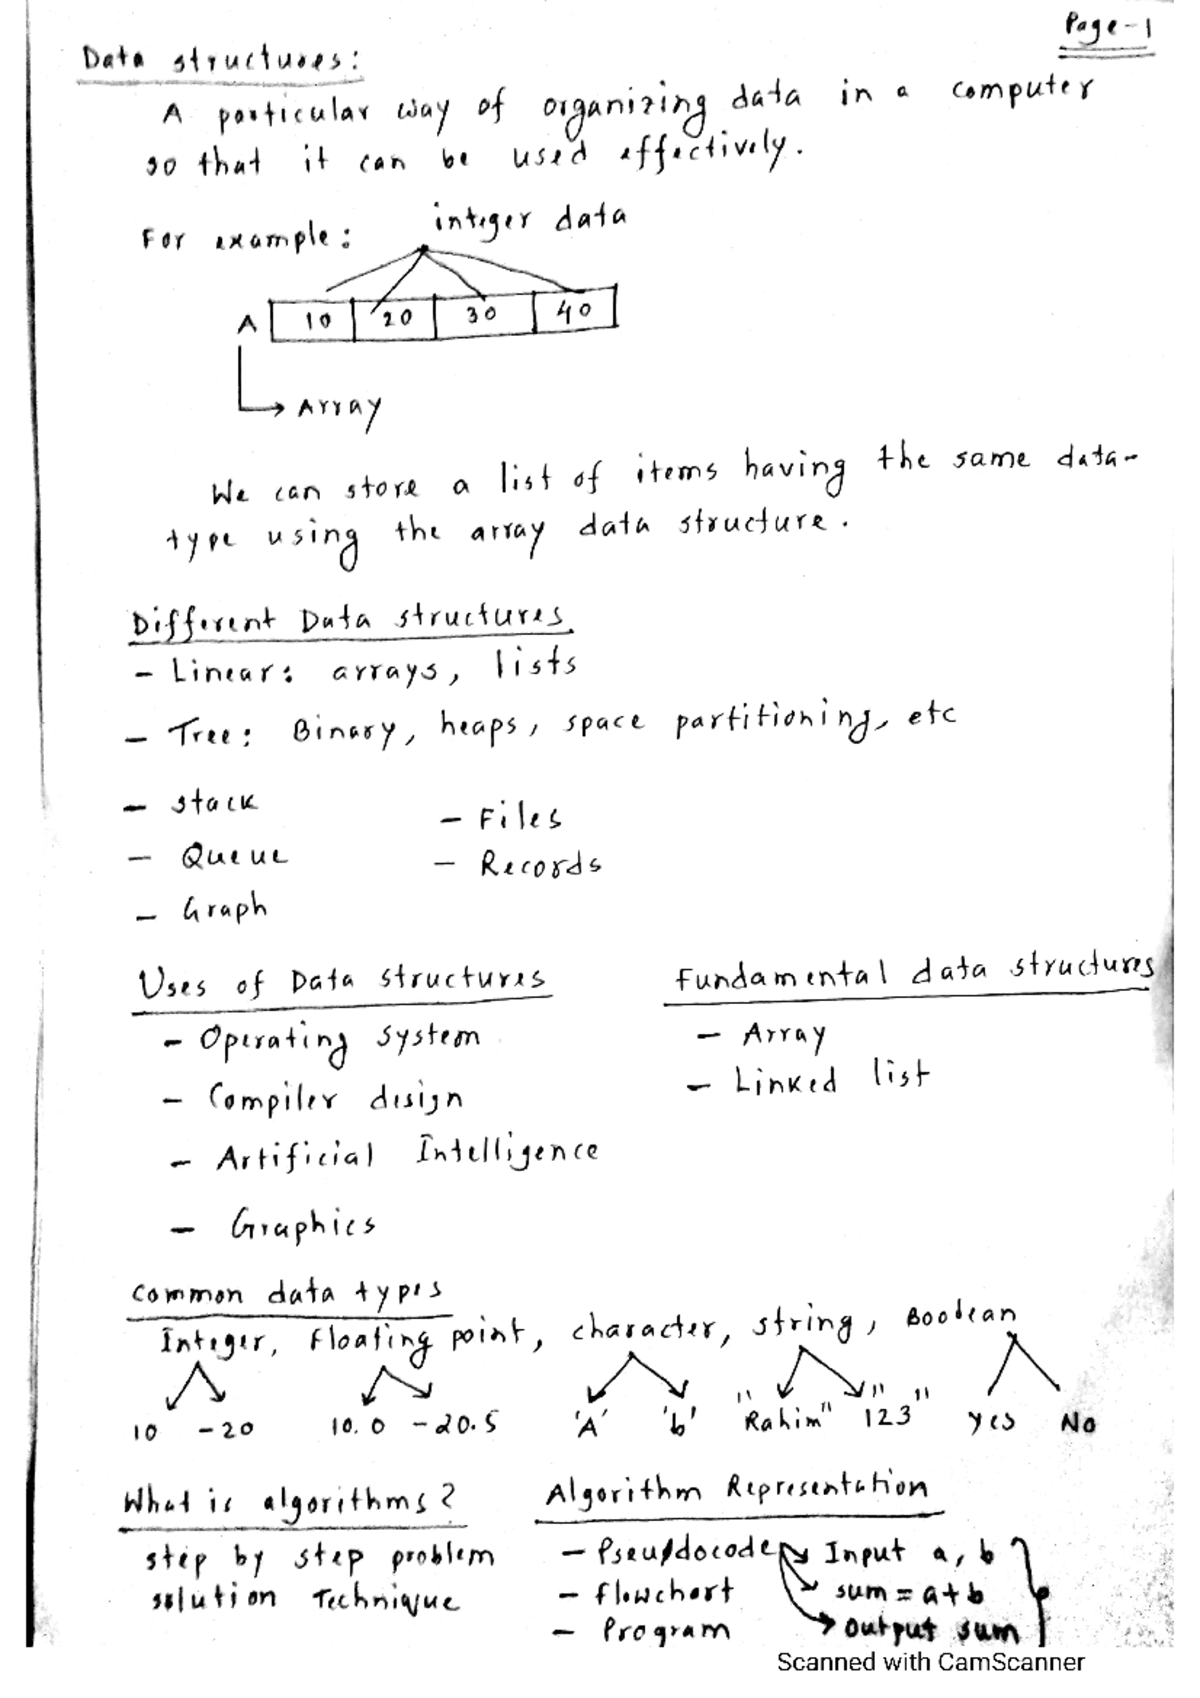 Page-1
Data structures:
A particular way of organizing data in a computer
so that it can be used effectively.
For example:
integer data
A 10 20 30 40
Array
We can store a list of items having the same data-
type using the array data structure.
Different Data structures
- Linear: arrays, lists
- Tree: Binary, heaps, space partitioning, etc
- stack
- Queue
- Graph
- Files
- Records
Uses of Data structures
- Operating system
- Compiler design
- Artificial Intelligence
- Graphics
Fundamental data structures
- Array
- Linked list
Common data types
Integer, Floating point, character, string, Boolean
10 -20 10.0 -20.5 'A' 'b' "Rahim" "123" Yes No
What is algorithms?
step by step problem
solution Technique
Algorithm Representation
- Pseudocode
- flowchart
- Program
Input a, b
sum = a+b
output sum
Scanned with CamScanner